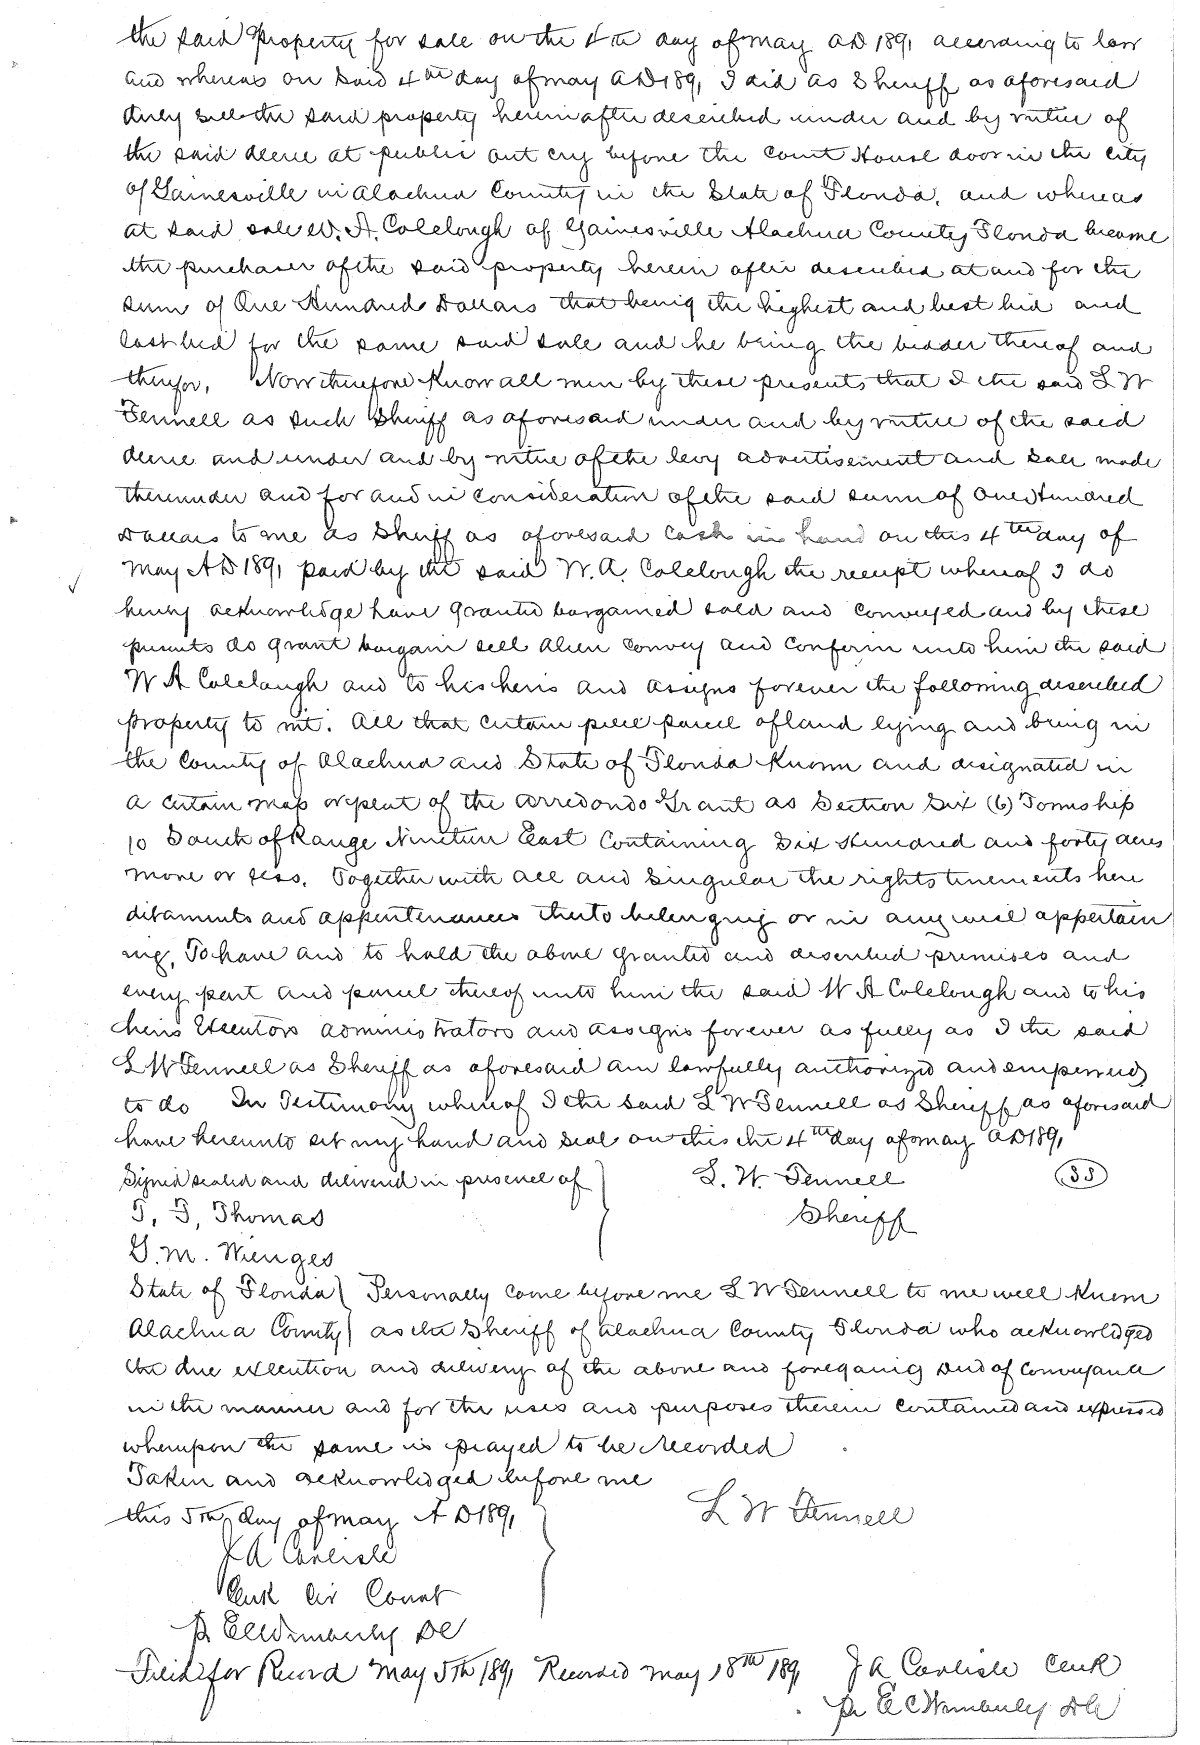 the said property for sale on the 4th day of May AD 1891 according to law
and whereas on said 4th day of May AD 1891 I did as Sheriff as aforesaid
duly sell the said property herein after described under and by virtue of
the said decree at public out cry before the Court House door in the city
of Gainesville in Alachua County in the State of Florida, and whereas
at said sale W. A. Colclough of Gainesville Alachua County Florida became
the purchaser of the said property herein after described at and for the
sum of One Hundred Dollars that being the highest and best bid and
last bid for the same said sale and he being the bidder thereof and
therefor, Now therefore Know all men by these presents that I the said L W
Fennell as such Sheriff as aforesaid under and by virtue of the said
decree and under and by virtue of the levy advertisement and sale made
thereunder and for and in consideration of the said sum of One Hundred
Dollars to me as Sheriff as aforesaid cash in hand on this 4th day of
May AD 1891 paid by the said W. A. Colclough the receipt whereof I do
hereby acknowledge have granted bargained sold and conveyed and by these
presents do grant bargain sell alien convey and confirm unto him the said
W A Colclough and to his heirs and assigns forever the following described
property to wit: All that certain piece parcel of land lying and being in
the County of Alachua and State of Florida Known and designated in
a certain map or peat of the Arredondo Grant as Section Six (6) Township
10 South of Range Nineteen East Containing Six Hundred and forty acres
more or less. Together with all and singular the rights tenements here
ditaments and appurtenances thereto belonging or in any wise appertain
ing, To have and to hold the above granted and described premises and
every part and parcel thereof unto him the said W A Colclough and to his
heirs Executors administrators and assigns forever as fully as I the said
L W Fennell as Sheriff as aforesaid am lawfully authorized and empowered
to do In Testimony whereof I the said L W Fennell as Sheriff as aforesaid
have hereunto set my hand and seal on this the 4th day of May AD 1891
Signed sealed and delivered in presence of L. W. Fennell (SS)
T. F. Thomas Sheriff
G. M. Wienges
State of Florida Personally came before me L W Fennell to me well Known
Alachua County as the Sheriff of Alachua County Florida who acknowledged
the due execution and delivery of the above and foregoing deed of conveyance
in the manner and for the uses and purposes therein contained and expressed
whereupon the same is prayed to be recorded
Taken and acknowledged before me
this 5th day of May AD 1891 L W Fennell
J A Carlisle
Clerk Cir Court
Pr E C Wimberly DC
Filed for Record May 5th 1891 Recorded May 18th 1891 J A Carlisle Clerk
Pr E C Wimberly DC